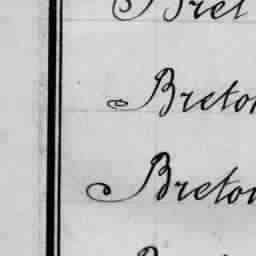 Bret
Breto
Breto